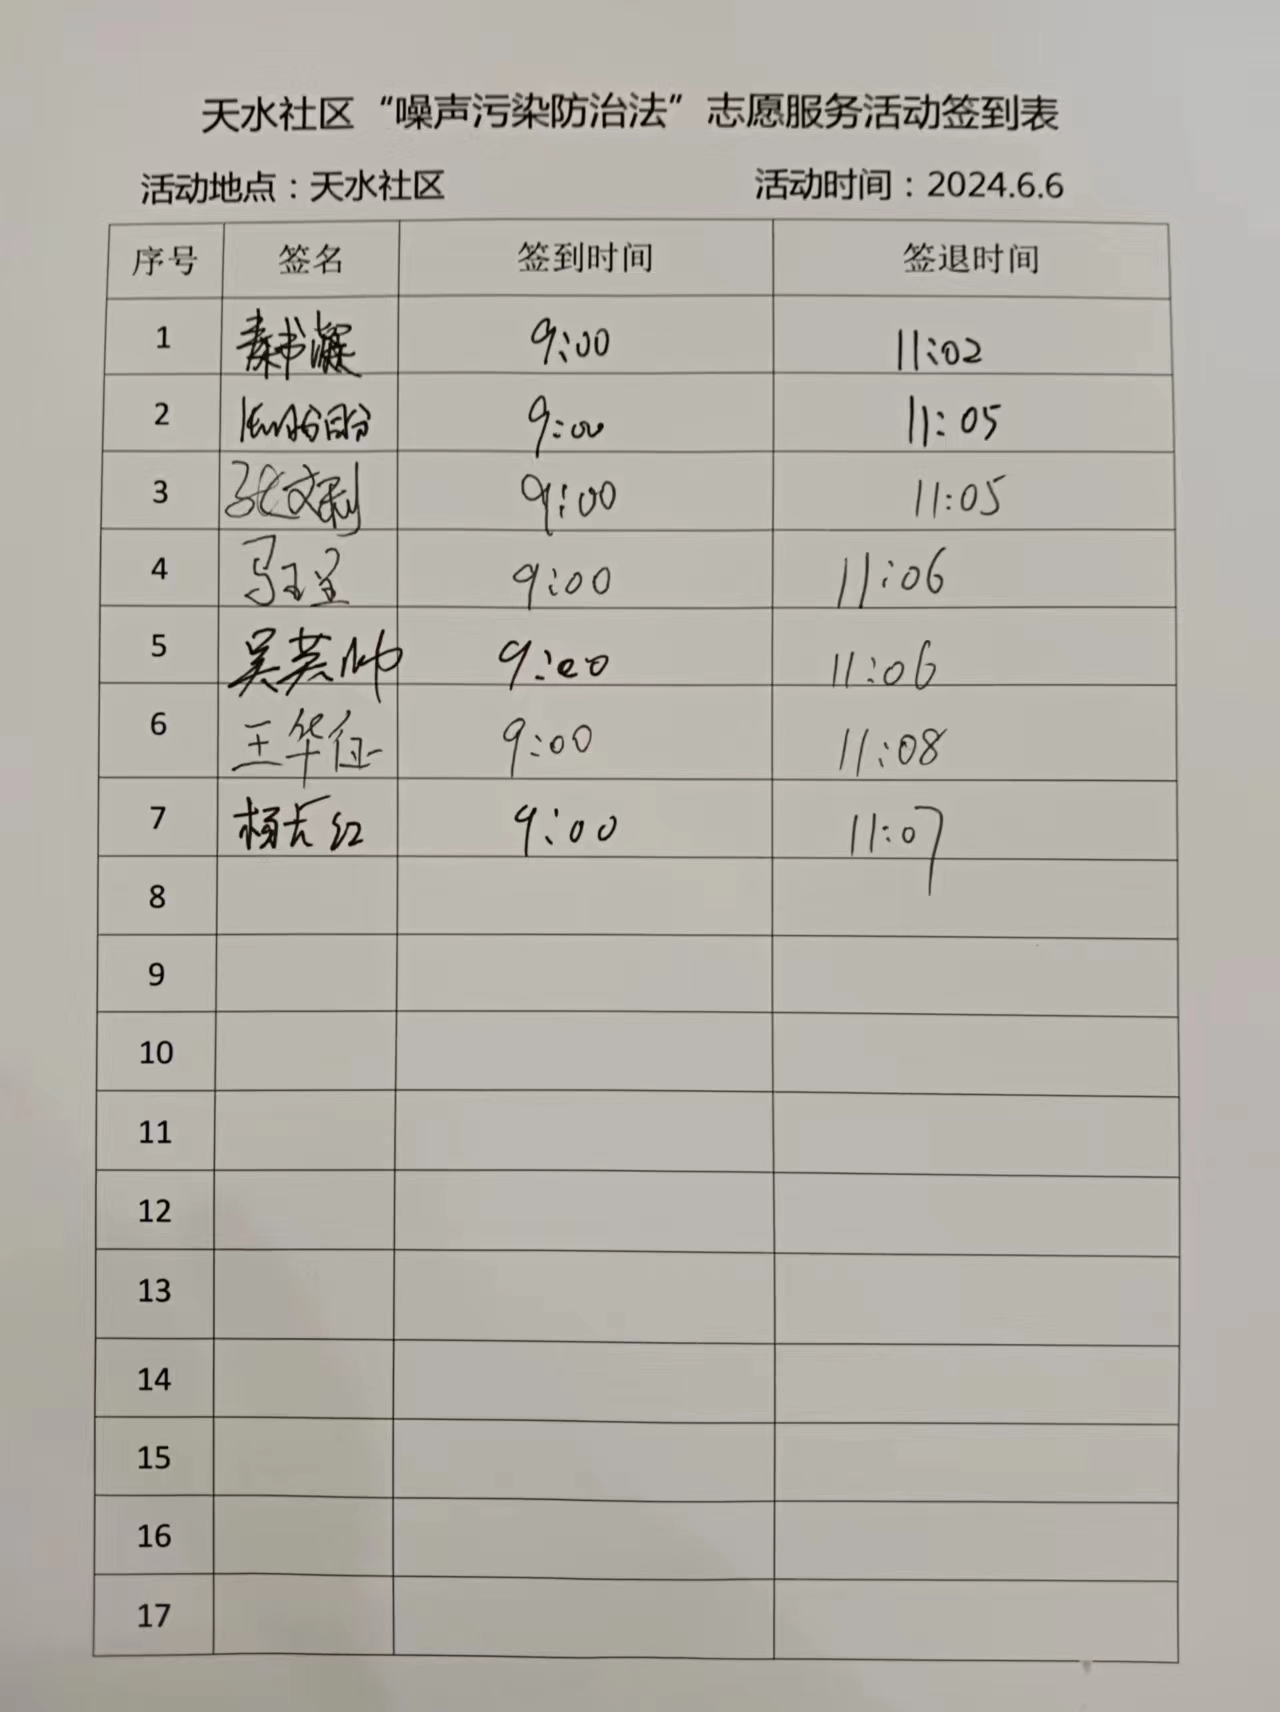 天水社区“噪声污染防治法”志愿服务活动签到表
活动地点：天水社区 活动时间：2024.6.6
序号 签名 签到时间 签退时间
1 秦书 9:00 11:02
2 9:00 11:05
3 张文利 9:00 11:05
4 马玉宝 9:00 11:06
5 吴英帅 9:00 11:06
6 王华征 9:00 11:08
7 杨长红 9:00 11:07
8
9
10
11
12
13
14
15
16
17